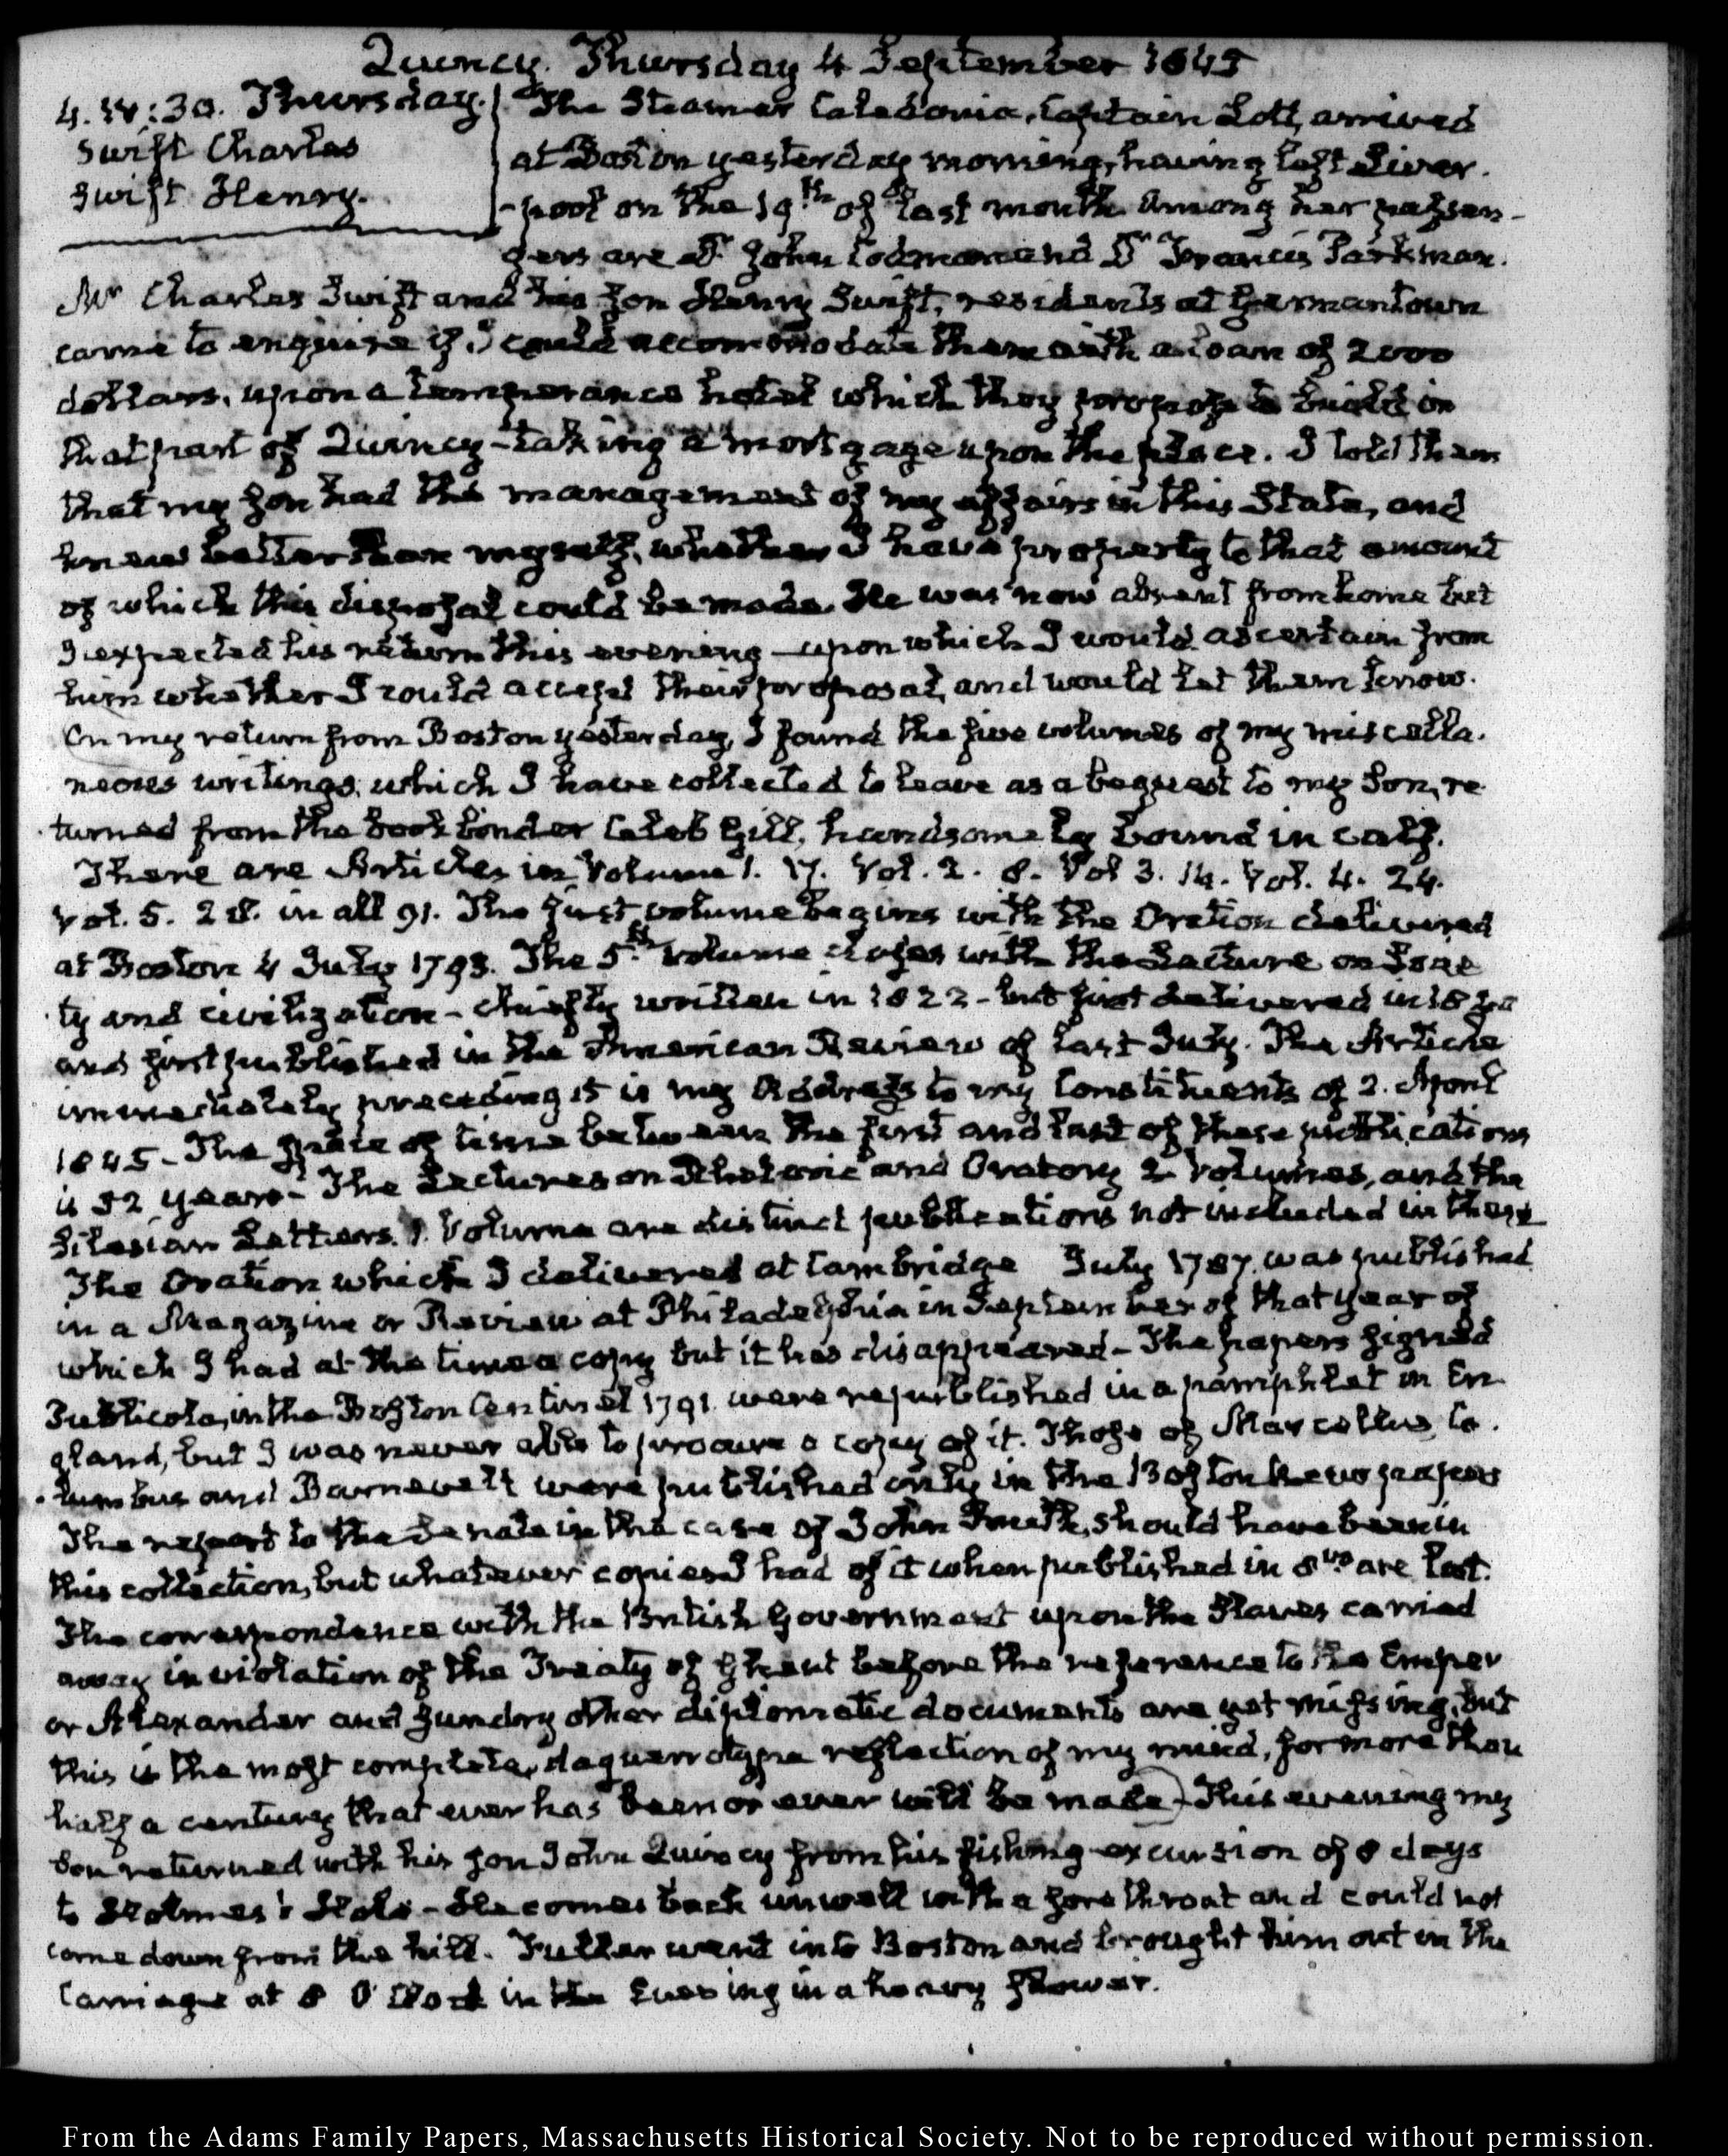 Quincy. Thursday 4 September 1845
4. IV:30. Thursday.
Swift Charles
Swift Henry.
The Steamer Caledonia, Captain Lott, arrived
at Boston yesterday morning, having left Liver-
-pool on the 19th of last month. Among her passen-
gers are Dr John Codman and Dr Francis Parkman.
Mr Charles Swift and his son Henry Swift, residents at Germantown
came to enquire if I could accommodate them with a loan of 2000
dollars, upon a temperance hotel which they propose to build in
that part of Quincy - taking a mortgage upon the place. I told them
that my son had the management of my affairs in this State, and
knew better than myself, whether I have property to that amount
of which this disposal could be made. He was now absent from home but
I expected his return this evening - upon which I would ascertain from
him whether I could accept their proposal, and would let them know.
On my return from Boston yesterday, I found the five volumes of my miscella-
neous writings, which I have collected to leave as a bequest to my Son, re-
turned from the bookbinder Caleb Gill, handsomely bound in calf.
There are Articles in Volume 1. 17. Vol. 2. 8. Vol 3. 14. Vol. 4. 24.
Vol. 5. 28. in all 91. The first volume begins with the Oration delivered
at Boston 4 July 1793. The 5th volume closes with the Lecture on Socie
ty and civilization - chiefly written in 1822 - but first delivered in
and first published in the American Review of last July. The Article
immediately preceding it is my Address to my Constituents of 2. April
1845 - The space of time between the first and last of these publications
is 52 years - The Lectures on Rhetoric and Oratory 2 Volumes, and the
Silesian Letters. 1. Volume are distinct publications not included in these
The Oration which I delivered at Cambridge July 1787. was published
in a Magazine or Review at Philadelphia in September of that year of
which I had at the time a copy but it has disappeared - The papers signed
Publicola, in the Boston Centinel 1791. were republished in a pamphlet in En-
gland, but I was never able to procure a copy of it. Those of Marcellus, Co-
-lumbus and Barnevelt were published only in the Boston Newspapers
The report to the Senate in the case of John Smith, should have been in
this collection, but whatever copies I had of it when published in 8vo are lost.
The correspondence with the British Government upon the Slaves carried
away in violation of the Treaty of Ghent before the reference to the Emper
or Alexander and sundry other diplomatic documents are yet missing, but
this is the most complete, daguerrotype reflection of my mind, for more than
half a century that ever has been or ever will be made) - This evening my
Son returned with his son John Quincy from his fishing excursion of 8 days
to Holmes's Hole - He comes back unwell with a sore throat and could not
come down from the hill. Fuller went into Boston and brought him out in the
Carriage at 8 O'Clock in the Evening in a heavy shower.
From the Adams Family Papers, Massachusetts Historical Society. Not to be reproduced without permission.